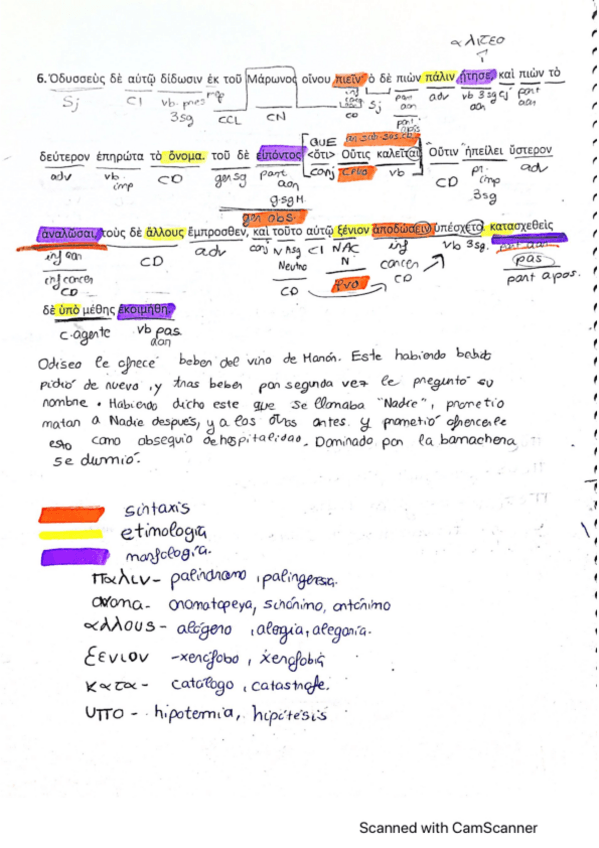 αλιτεο
6. Ὀδυσσεὺς δὲ αὐτῷ δίδωσιν ἐκ τοῦ Μάρωνος οἴνου πιεῖν· ὁ δὲ πιὼν πάλιν ᾔτησε, καὶ πιὼν τὸ
Sj CI vb. pres prep inf Sj part aon adv vb 3sg cj part aon
3sg CCL CN CD part. apos
δεύτερον ἐπηρώτα τὸ ὄνομα. τοῦ δὲ εἰπόντος <ὅτι> Οὖτις καλεῖται, Οὖτιν ἠπείλει ὕστερον
QUE
adv vb. imp CD gen sg part aon g.sg M. conj CPVO vb CD pr. imp 3sg adv
gen abs.
ἀναλῶσαι, τοὺς δὲ ἄλλους ἔμπροσθεν, καὶ τοῦτο αὐτῷ ξένιον ἀποδώσειν ὑπέσχετο. κατασχεθεὶς
inf aon CD adv conj N Asg CI NAC inf vb 3sg.
inf concer CD Neutro N. concer pas
CD CD part apos.
δὲ ὑπὸ μέθης ἐκοιμήθη.
c. agente vb pas aon
Odiseo le ofrece beber del vino de Marón. Este habiendo bebido
pidió de nuevo, y tras beber por segunda vez le preguntó su
nombre. Habiendo dicho este que se llamaba "Nadie", prometio
matar a Nadie después, y a los otros antes. y prometió ofrecerle
esto como obsequio de hospitalidad. Dominado por la borrachera
se durmió.
sintaxis
etimologia
morfología.
παλιν - palíndromo, palingenesia.
ονομα - onomatopeya, sinónimo, antónimo
αλλους - alógeno, alogia, alegoria.
ξενιον - xenófobo, xenofobia
κατα - catálogo, catastrofe.
υπο - hipotermia, hipótesis
Scanned with CamScanner